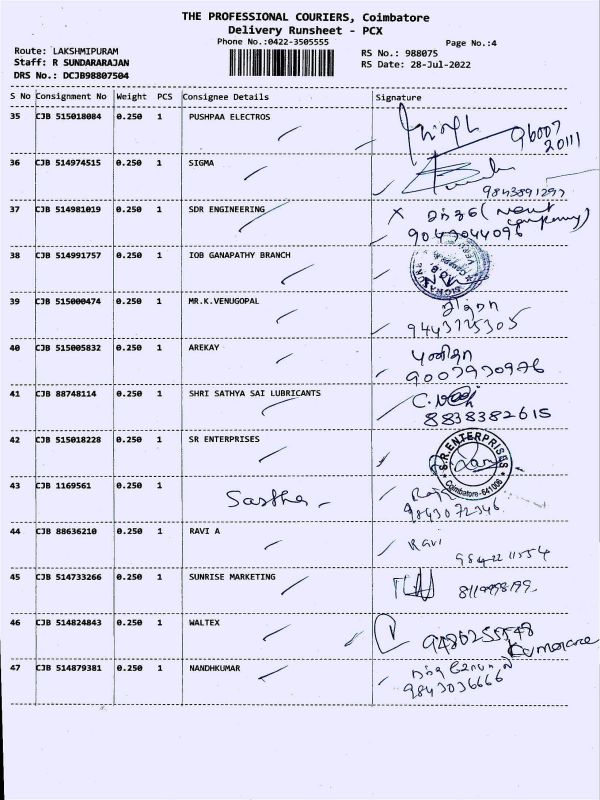 THE PROFESSIONAL COURIERS, Coimbatore
Delivery Runsheet - PCX
Phone No.:0422-3505555
Page No.:4
Route: LAKSHMIPURAM
Staff: R SUNDARARAJAN
DRS No.: DCJB98807504
RS No.: 988075
RS Date: 28-Jul-2022
S No Consignment No Weight PCS Consignee Details Signature
35 CJB 515018084 0.250 1 PUSHPAA ELECTROS
96007
20111
36 CJB 514974515 0.250 1 SIGMA
9843891297
37 CJB 514981019 0.250 1 SDR ENGINEERING
38 CJB 514991757 0.250 1 IOB GANAPATHY BRANCH
39 CJB 515000474 0.250 1 MR.K.VENUGOPAL
9443725305
40 CJB 515005832 0.250 1 AREKAY
9007970976
41 CJB 88748114 0.250 1 SHRI SATHYA SAI LUBRICANTS
8838382615
42 CJB 515018228 0.250 1 SR ENTERPRISES
S.R.ENTERPRISES
Coimbatore-641006
43 CJB 1169561 0.250 1 Sastha
9843072346
44 CJB 88636210 0.250 1 RAVI A Ravi
45 CJB 514733266 0.250 1 SUNRISE MARKETING
46 CJB 514824843 0.250 1 WALTEX
9486255548
47 CJB 514879381 0.250 1 NANDHKUMAR
9843036666